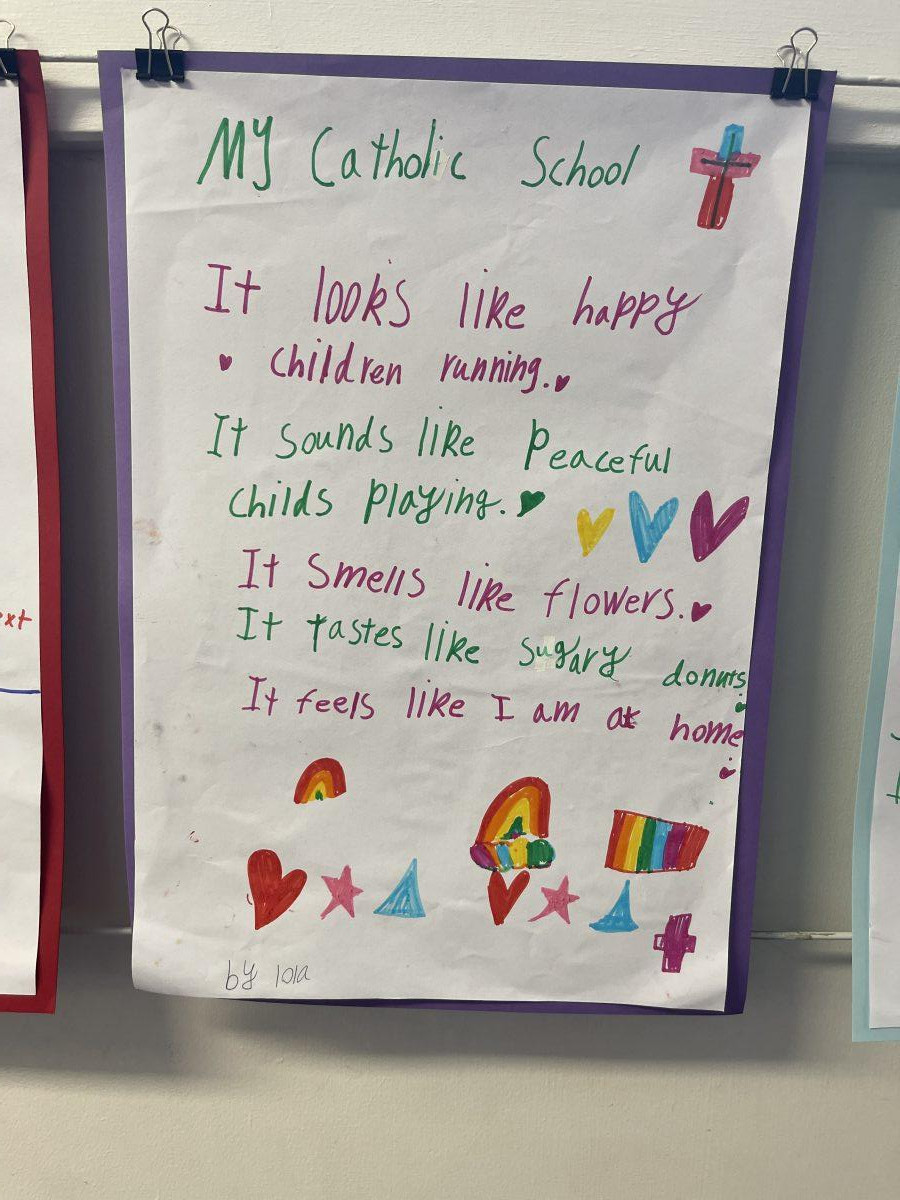 My Catholic School
It looks like happy
children running.
It sounds like Peaceful
childs playing.
It smells like flowers.
It tastes like sugary donuts
It feels like I am at home
by lola
ext